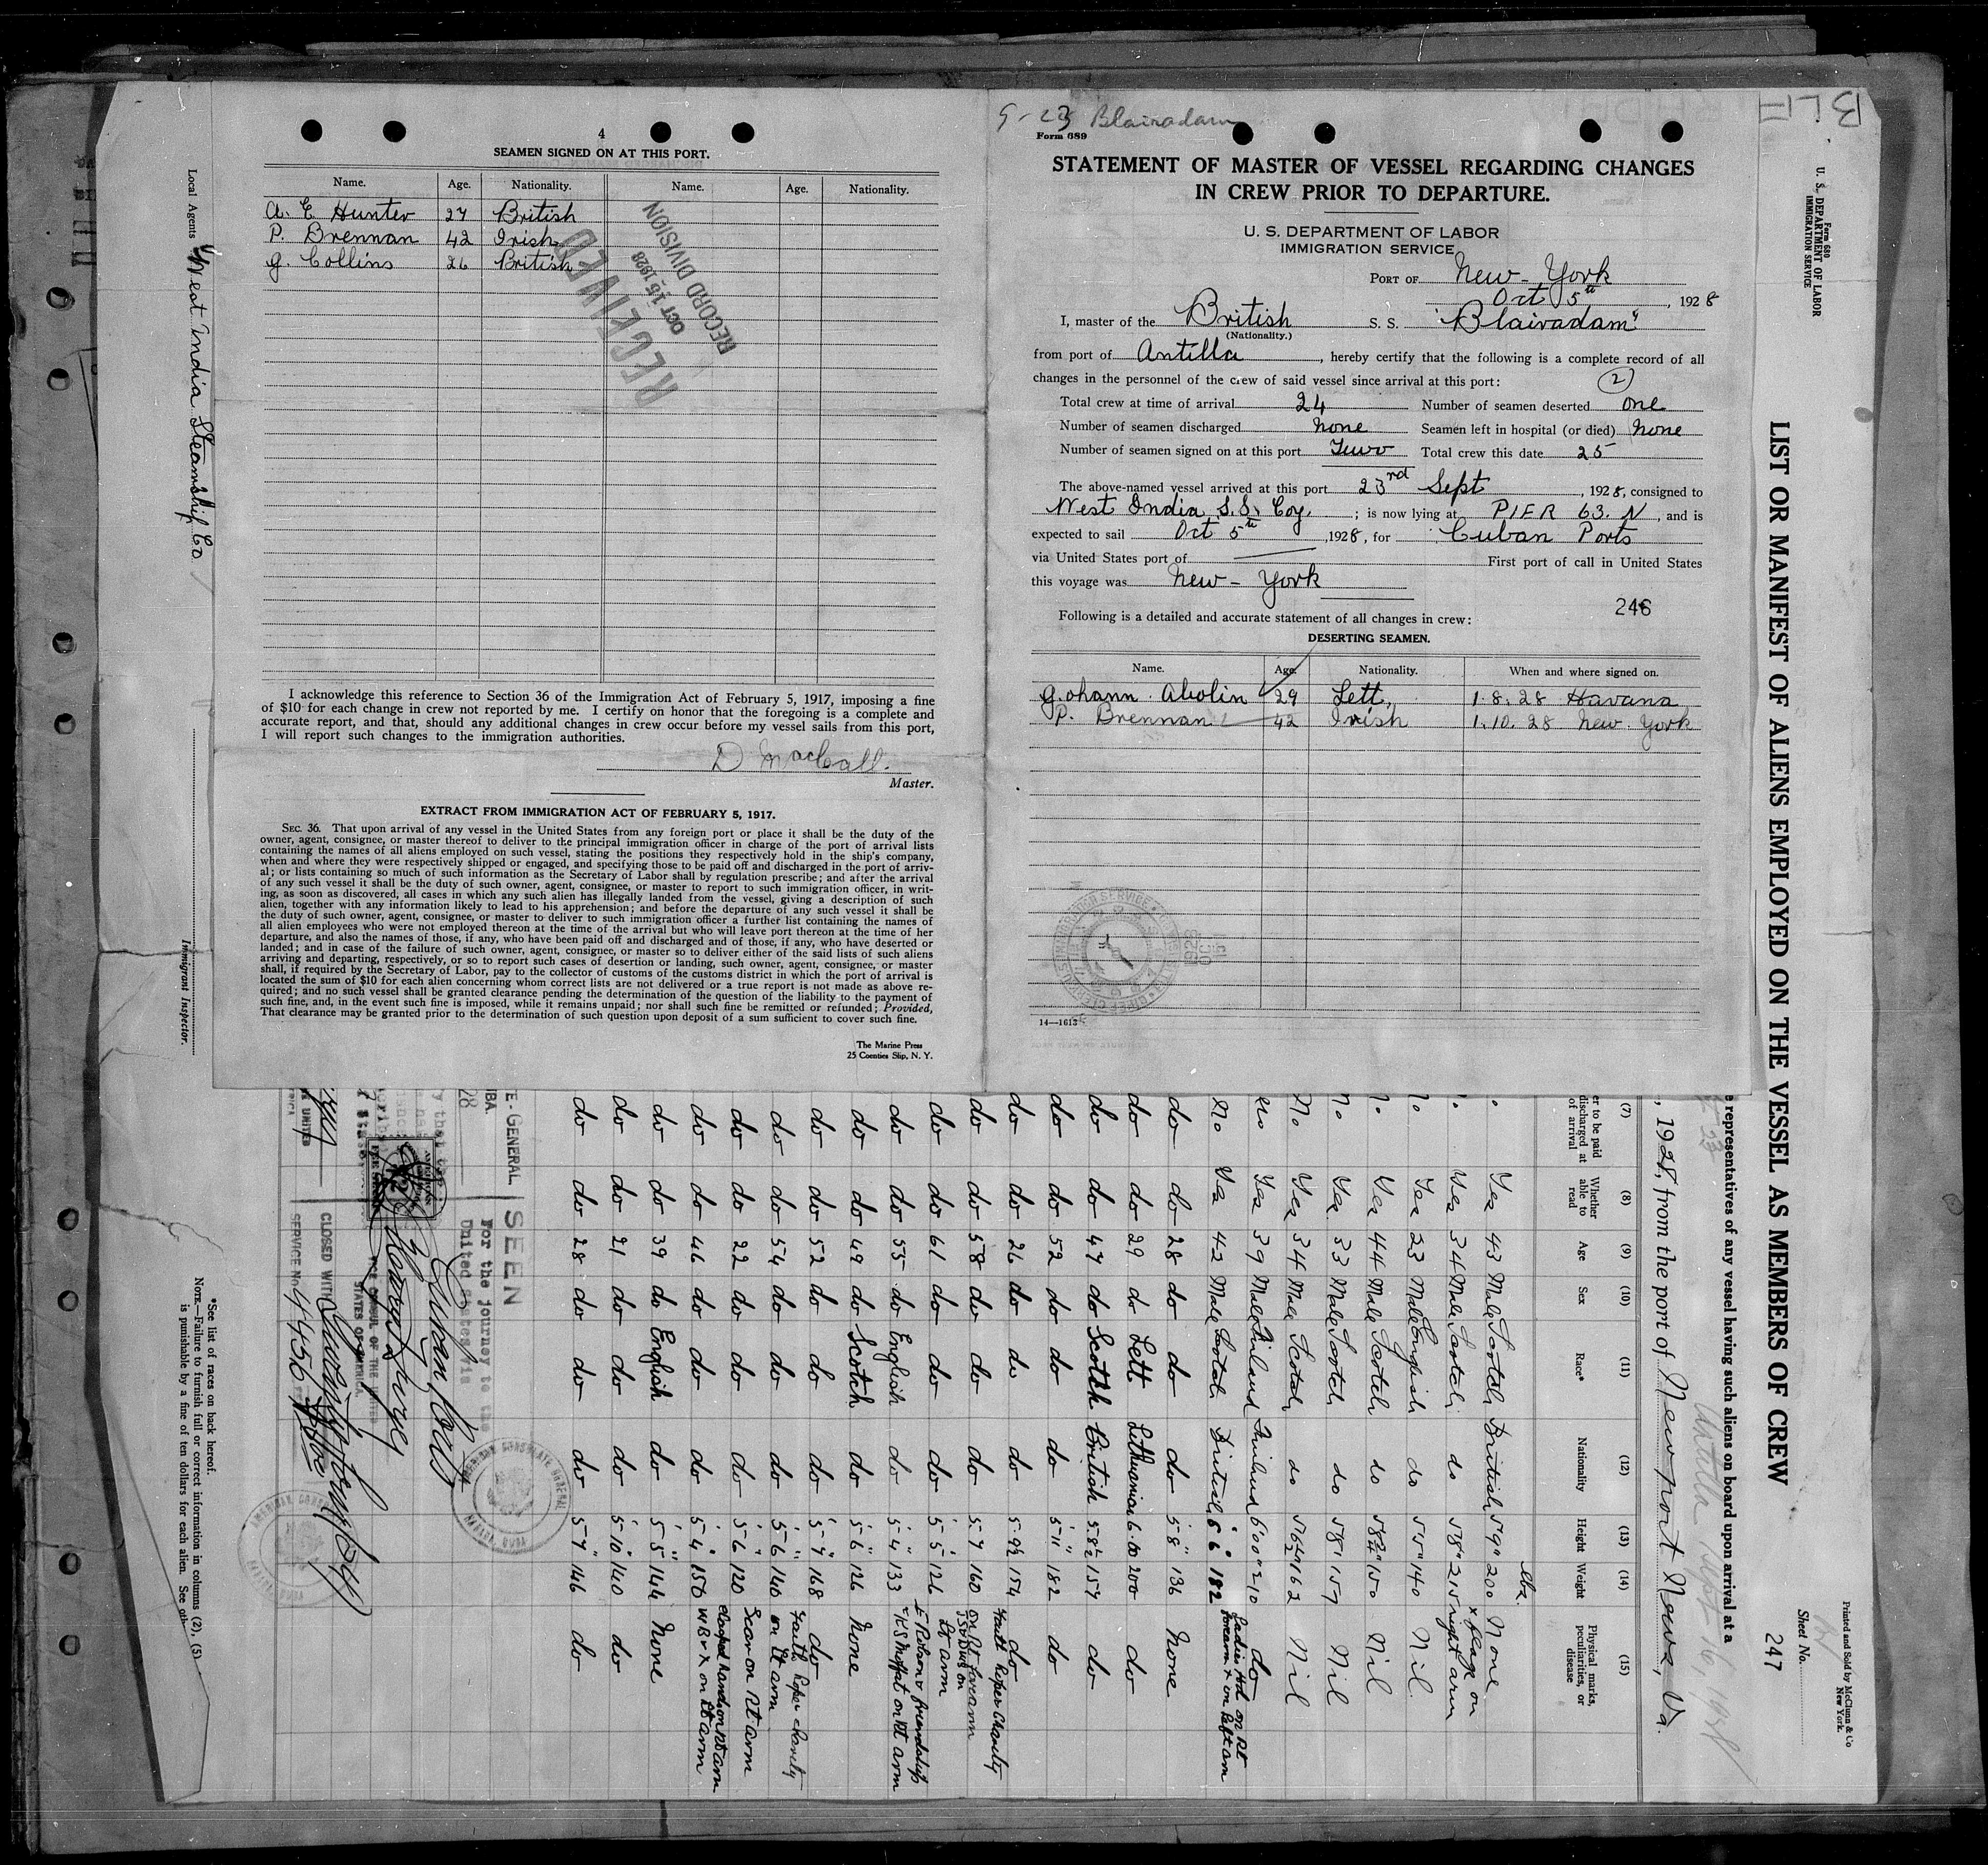 4
SEAMEN SIGNED ON AT THIS PORT.
Name. Age. Nationality. Name. Age. Nationality.
A. E Hunter 27 British
P. Brennan 42 Irish
G. Collins 26 British
RECEIVED
OCT 15 1928
RECORD DIVISION
I acknowledge this reference to Section 36 of the Immigration Act of February 5, 1917, imposing a fine
of $10 for each change in crew not reported by me. I certify on honor that the foregoing is a complete and
accurate report, and that, should any additional changes in crew occur before my vessel sails from this port,
I will report such changes to the immigration authorities.
D MacCall.
Master.
EXTRACT FROM IMMIGRATION ACT OF FEBRUARY 5, 1917.
SEC. 36. That upon arrival of any vessel in the United States from any foreign port or place it shall be the duty of the
owner, agent, consignee, or master thereof to deliver to the principal immigration officer in charge of the port of arrival lists
containing the names of all aliens employed on such vessel, stating the positions they respectively hold in the ship's company,
when and where they were respectively shipped or engaged, and specifying those to be paid off and discharged in the port of arriv-
al; or lists containing so much of such information as the Secretary of Labor shall by regulation prescribe; and after the arrival
of any such vessel it shall be the duty of such owner, agent, consignee, or master to report to such immigration officer, in writ-
ing, as soon as discovered, all cases in which any such alien has illegally landed from the vessel, giving a description of such
alien, together with any information likely to lead to his apprehension; and before the departure of any such vessel it shall be
the duty of such owner, agent, consignee, or master to deliver to such immigration officer a further list containing the names of
all alien employees who were not employed thereon at the time of the arrival but who will leave port thereon at the time of her
departure, and also the names of those, if any, who have been paid off and discharged and of those, if any, who have deserted or
landed; and in case of the failure of such owner, agent, consignee, or master so to deliver either of the said lists of such aliens
arriving and departing, respectively, or so to report such cases of desertion or landing, such owner, agent, consignee, or master
shall, if required by the Secretary of Labor, pay to the collector of customs of the customs district in which the port of arrival is
located the sum of $10 for each alien concerning whom correct lists are not delivered or a true report is not made as above re-
quired; and no such vessel shall be granted clearance pending the determination of the question of the liability to the payment of
such fine, and, in the event such fine is imposed, while it remains unpaid; nor shall such fine be remitted or refunded; Provided,
That clearance may be granted prior to the determination of such question upon deposit of a sum sufficient to cover such fine.
The Marine Press
25 Coenties Slip, N. Y.
9-23 Blairadam
Form 689
STATEMENT OF MASTER OF VESSEL REGARDING CHANGES
IN CREW PRIOR TO DEPARTURE.
U. S. DEPARTMENT OF LABOR
IMMIGRATION SERVICE
PORT OF New-York
Oct 5th, 1928
I, master of the British S. S. "Blairadam"
(Nationality.)
from port of Antilla, hereby certify that the following is a complete record of all
changes in the personnel of the crew of said vessel since arrival at this port: (2)
Total crew at time of arrival 24 Number of seamen deserted one
Number of seamen discharged none Seamen left in hospital (or died) None
Number of seamen signed on at this port Two Total crew this date 25
The above-named vessel arrived at this port 23rd Sept, 1928, consigned to
West India S.S. Coy.; is now lying at PIER 63. N, and is
expected to sail Oct 5th, 1928, for Cuban Ports
via United States port of First port of call in United States
this voyage was New-York
246
Following is a detailed and accurate statement of all changes in crew:
DESERTING SEAMEN.
Name. Age. Nationality. When and where signed on.
Johann Abolin 29 Lett, 1.8.28 Havana
P. Brennan 42 Irish 1.10.28 New York
14—1613
Local Agents West India Steamship Co
Immigrant Inspector.
Form 680
U. S. DEPARTMENT OF LABOR
IMMIGRATION SERVICE
LIST OR MANIFEST OF ALIENS EMPLOYED ON THE VESSEL AS MEMBERS OF CREW
Printed and Sold by McClunn & Co
New York.
Sheet No.
247
e representatives of any vessel having such aliens on board upon arrival at a
Antilla Sept 16, 1928
, 1928, from the port of Newport News, Va.
(7) (8) (9) (10) (11) (12) (13) (14) (15)
er to be paid discharged at of arrival Whether able to read Age Sex Race* Nationality Height Weight Physical marks, peculiarities, or disease
lbs.
Yes 43 Male Scotch British 5'9" 200 None
Yes 34 Male Scotch do 5'8" 215 x flags on right arm
No Yes 23 Male English do 5'5" 140 Nil.
No Yes 44 Male Scotch do 5'8½" 150 Nil
No Yes 33 Male Scotch do 5'8" 157 Nil
No Yes 34 Male Scotch do 5'6½" 162 Nil
No Yes 39 Male Finland Finland 6'00" 210 do
No Yes 42 Male Scotch British 5'6" 182
do do 28 do do do 5'8" 136 None
do do 29 do Lett Lithuanian 6.00 200 do
do do 47 do Scotch British 5.8½ 157 do
do do 52 do do do 5'11" 182 do
do do 26 do do do 5.9½ 154 do
do do 58 do do do 5.7 160
do do 61 do do do 5'5" 126
do do 55 do English do 5'4" 133
do do 49 do Scotch do 5'6" 126 None
do do 52 do do do 5'7" 168 do
do do 54 do do do 5'6" 140 Faith Hope charity on Lt arm
do do 22 do do do 5'6" 120 Scar on Rt arm
do do 46 do do do 5'4" 150 Clasped hands on Rt arm
do do 39 do English do 5'5" 144 None
do do 21 do do do 5'10" 140 do
do do 28 do do do 5'7" 146 do
E-GENERAL
SEEN
For the journey to the
United States via
VICE CONSUL OF THE UNITED
STATES OF AMERICA.
CLOSED WITH
SERVICE No. 4456
AMERICAN CONSULATE GENERAL
*See list of races on back hereof.
NOTE.—Failure to furnish full or correct information in columns (2), (5)
is punishable by a fine of ten dollars for each alien. See